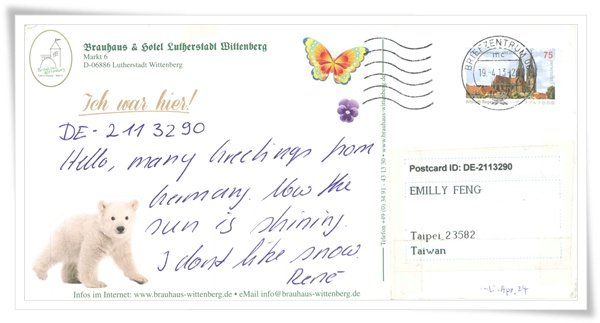 Brauhaus & Hotel Lutherstadt Wittenberg
Markt 6
D-06886 Lutherstadt Wittenberg
Ich war hier!
DE-2113290
Hello, many Greetings from
Germany. Now the
sun is shining.
I dont like snow.
René
Infos im Internet: www.brauhaus-wittenberg.de • eMail info@brauhaus-wittenberg.de
Telefon +49 (0) 34 91 - 43 13 30
BRIEFZENTRUM
19.4.13
75
Postcard ID: DE-2113290
EMILLY FENG
Taipei 23582
Taiwan
Apr. 24